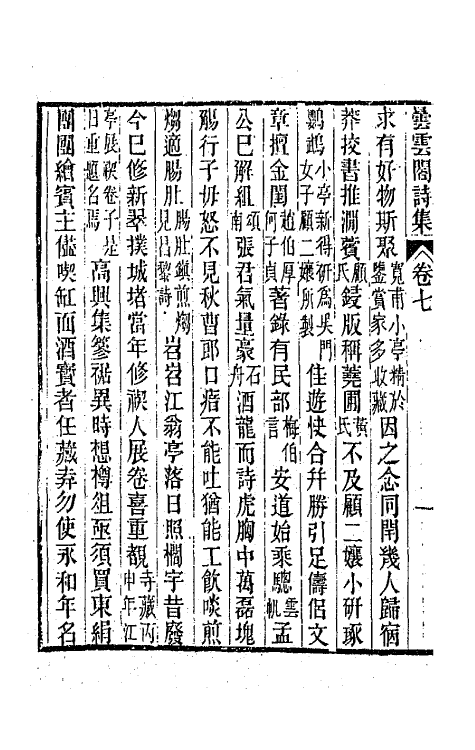 曇雲閣詩集 卷七 一
求有好物斯聚寬甫小亭精於鑒賞家多收藏因之念同閈幾人歸宿
莽挍書推澗薲顧氏鋟版稱蕘圃黃氏不及顧二孃小研琢
鸜鵡小亭新得研為吳門女子顧二孃所製佳遊快合并勝引足儔侶文
章擅金閨趙伯厚何子貞著錄有民部梅伯言安道始乘驄雲帆孟
公巳解組頌南張君氣量豪石舟酒龍而詩虎胸中萬磊塊
觴行子毋怒不見秋曹郎口瘖不能吐猶能工飲啖煎
煼適腸肚腸肚鎮煎煼見昌黎詩岧岧江翁亭落日照櫩宇昔廢
今巳修新翠撲城堵當年修禊人展卷喜重覩寺藏丙申年江
亭展禊卷子是日重題名焉高興集簪裾異時想樽俎亟須買東絹
團團繪賓主儘喫缸面酒寶者任藏弆勿使永和年名